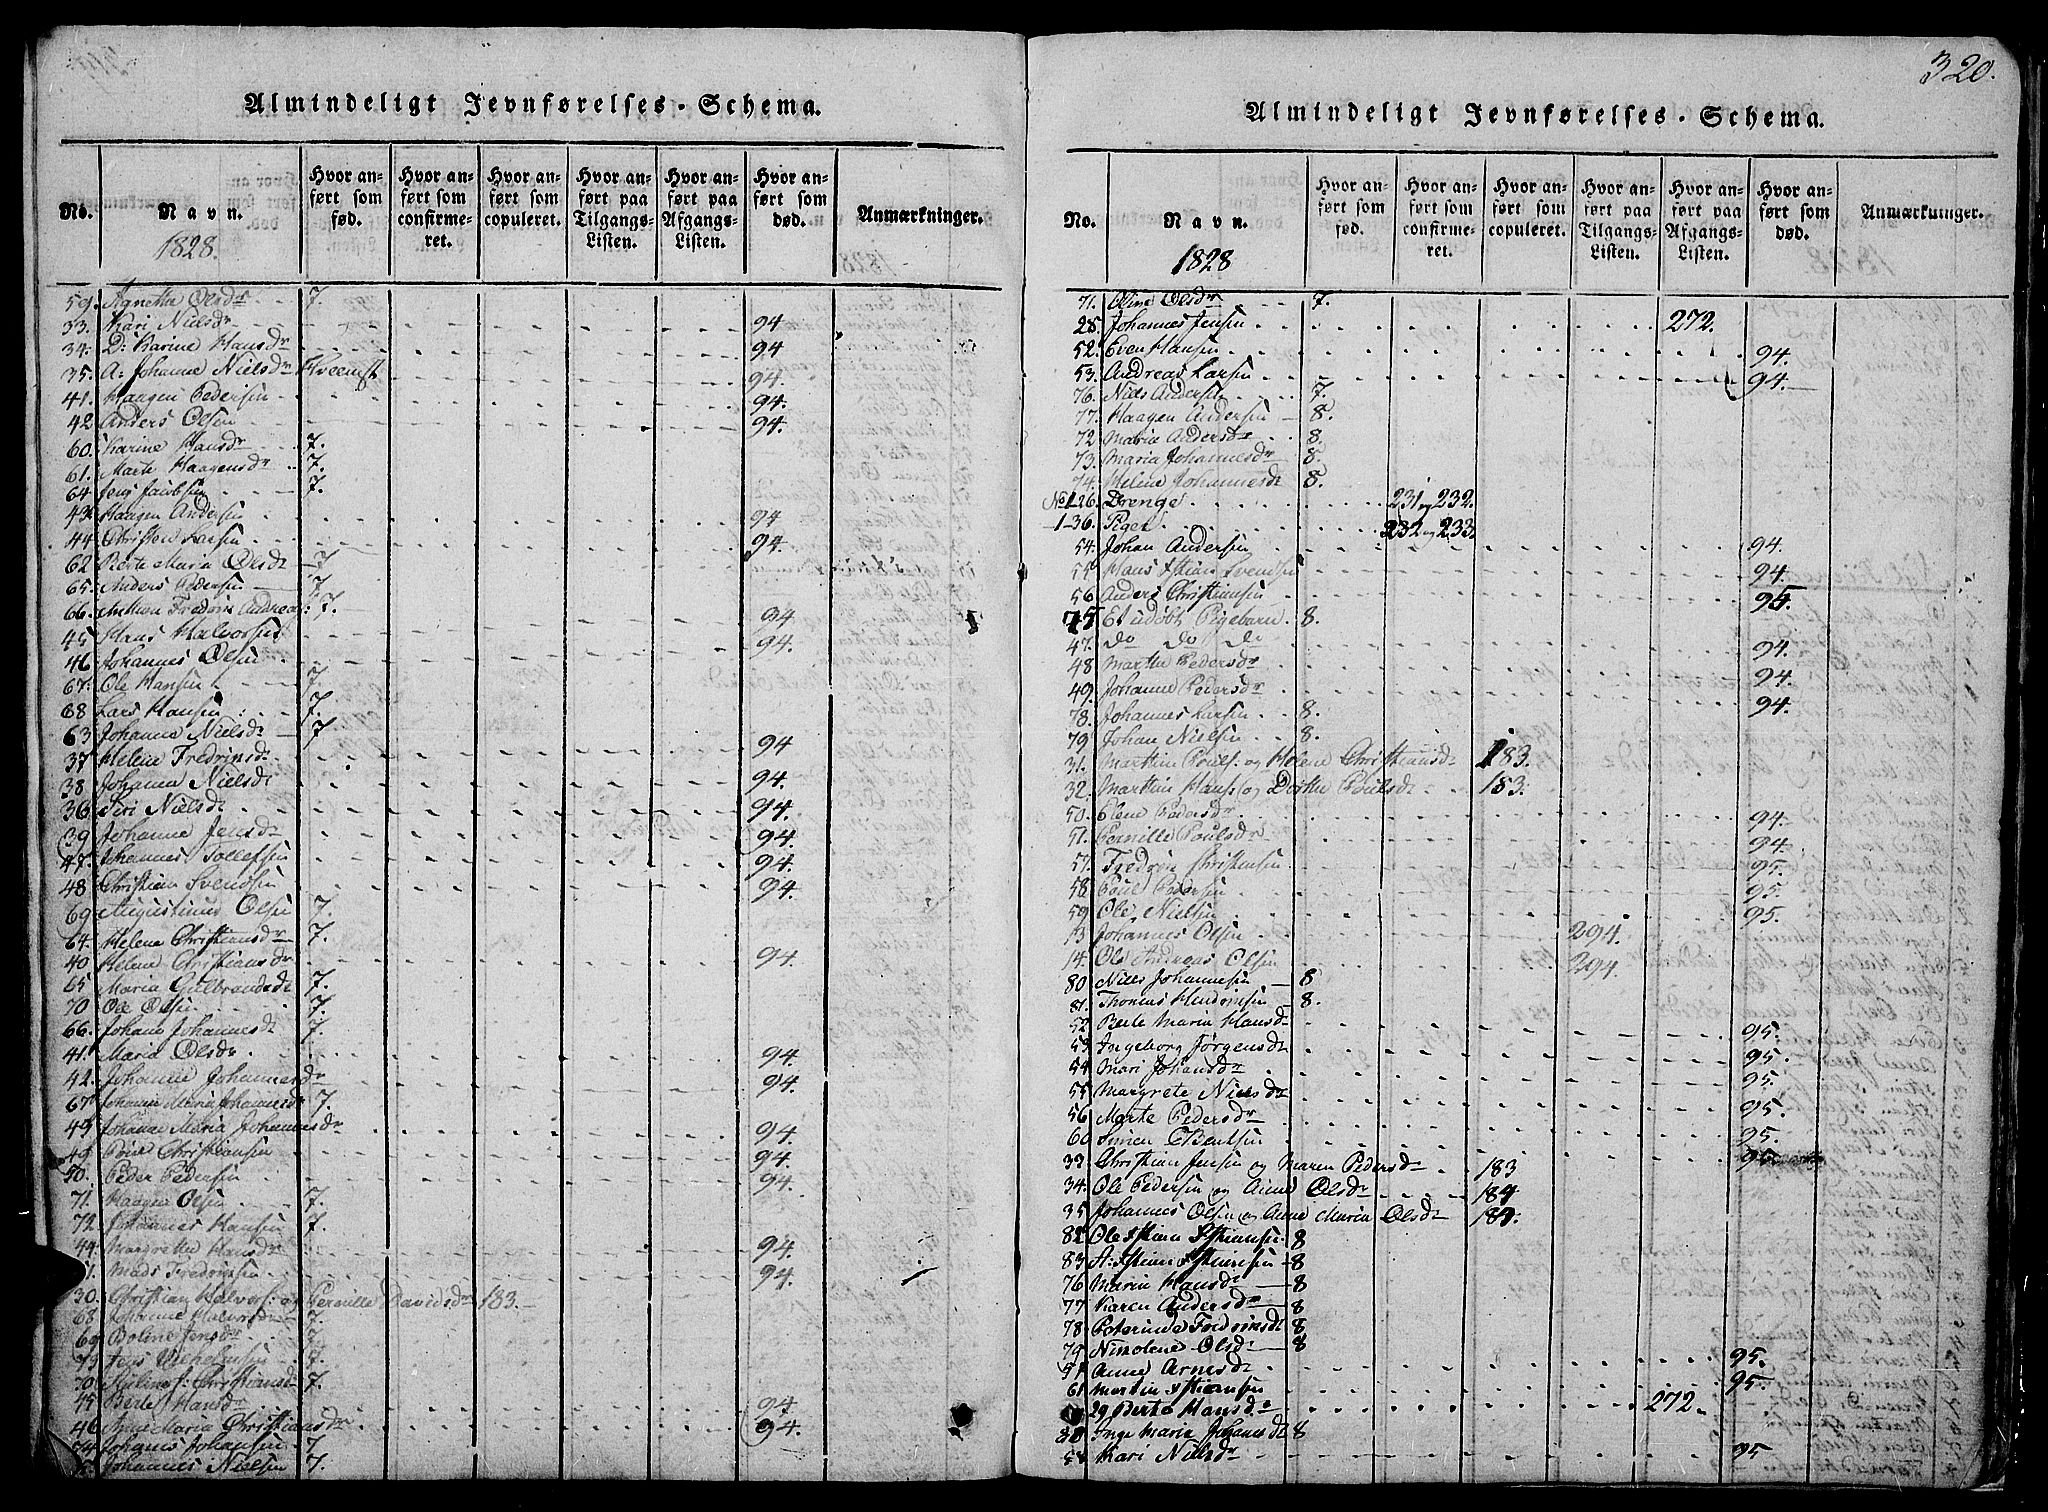 Almindeligt Jevnførelses-Schema.
No. Navn. Hvor anført som fød. Hvor anført som confirmeret. Hvor anført som copuleret. Hvor anført paa Tilgangs-Listen. Hvor anført paa Afgangs-Listen. Hvor anført som død. Anmærkninger.
1828.
59. Agnethe Olsdr 7.
33. Kari Nielsdr 94
34. D: Karine Hansdr 94
35. A: Johanne Nielsdr 94.
41. Haagen Pedersen 94.
42 Anders Olsen 94.
60. Karine Hansdr 7.
61. Marte Haagensdr 7.
64 Jens Jacobsen 7.
43. Haagen Andersen 94
44. Christen Larsen 94.
62 Berte Maria Olsdr 7
65. Anders Pedersen 7.
66. Andreas: 7.
45 Hans Halvorsen 94
46 Johannes Olsen 94.
67. Ole Hansen 7.
68 Lars Hansen 7.
63 Johanne Nielsdr 7
37 Helene Fredriksdr 94
38 Johanne Nielsdr 94.
36 Siri Nielsdr 94.
39 Johanne Jensdr 94.
47. Johannes Tollefsen 94.
48 Christian Svendsen 94.
69 Augustinus Olsen 7.
64. Helene Christiansdr 7.
40 Helene Christiansdr 94.
65 Maria Gulbrandsdr 7.
70 Ole Olsen 7.
66. Johane Johannesdr 7.
41. Maria Olsdr 94.
42. Johanne Johannesdr 94.
67 Johanne Maria Johannesdr 7.
43. Johanne Maria Johannesdr 94.
49 Poul Christiansen 94.
50. Peder Pedersen 94.
71. Haagen Olsen 7.
72. Johannes Hansen 7.
44. Margrethe Hansdr 94.
51. Mads Fredriksen 94.
30. Christian Halvors: og Pernille Davidsdr 183.
68 Johanne Halvorsdr 7.
69 Boline Jensdr 7
73 Jens 7.
70 Christiansdr 7.
45 Berte Hansdr 94.
46 Anne Maria Christiansdr 94.
74 Johannes Johansen 7.
Johannes Nielsen 7.
320.
Almindeligt Jevnførelses-Schema.
No. Navn. Hvor anført som fød. Hvor anført som confirmeret. Hvor anført som copuleret. Hvor anført paa Tilgangs-Listen. Hvor anført paa Afgangs-Listen. Hvor anført som død. Anmærkninger.
1828
71. Oline Olsdr 7.
28. Johannes Jensen 272.
52. Even Hansen 94.
53. Andreas Larsen 94.
76. Niels Andersen 7.
77. Haagen Andersen 8.
72 Marie Andersdr 8.
73. Maria Johannesdr 8.
74. Helene Johannesdr 8.
No 1-26. Drenge 231 og 232.
1-36. Piger 232 og 233.
54. Johan Andersen 94.
55 Hans Xstian Svendsen 94.
56 Anders Christiansen 95.
75 Et udøbt Pigebarn 8.
47. do do do 94.
48 Marthe Pedersdr 94.
49. Johanne Pedersdr 94.
78. Johannes Larsen 8.
79 Johan Nielsen 8.
31. Marthin Pouls: og Helene Christiansdr 183.
32. Marthin Hans: og Dorthe Poulsdr 183.
50. Elene Pedersdr 94.
51. Pernille Poulsdr 94.
57. Fredrik Christensen 95.
58. Poul Pedersen 95.
59 Ole Nielsen 95.
13 Johannes Olsen 294.
14. Ole Andreas Olsen 294.
80 Niels Johannesen 8
81. Thomas Hendriksen 8.
52. Berte Maria Hansdr 95.
53. Ingeborg Jørgensdr 95.
54 Mari Johansdr 95.
55 Margrete Nielsdr 95.
56 Marte Pedersdr 95.
60 Simen 95
33 Christian Jensen og Maren Pedersdr 183
34. Ole Pedersen og Anne Olsdr 184
35 Johannes Olsen og Anne Maria Olsdr 184.
82 Ole Xstian Xstiansen 8
83 8
76 Maria Hansdr 8
77 Karen Andersdr 8
78. Peterine Fredriksdr 8
79 Nikolene Olsdr 8
57 Anne Arnesdr 95.
61 Martin Xstiansen 95.
29 Berte Hansdr 272.
80 Inge Maria Johansdr 8
58 Kari Nielsdr 95